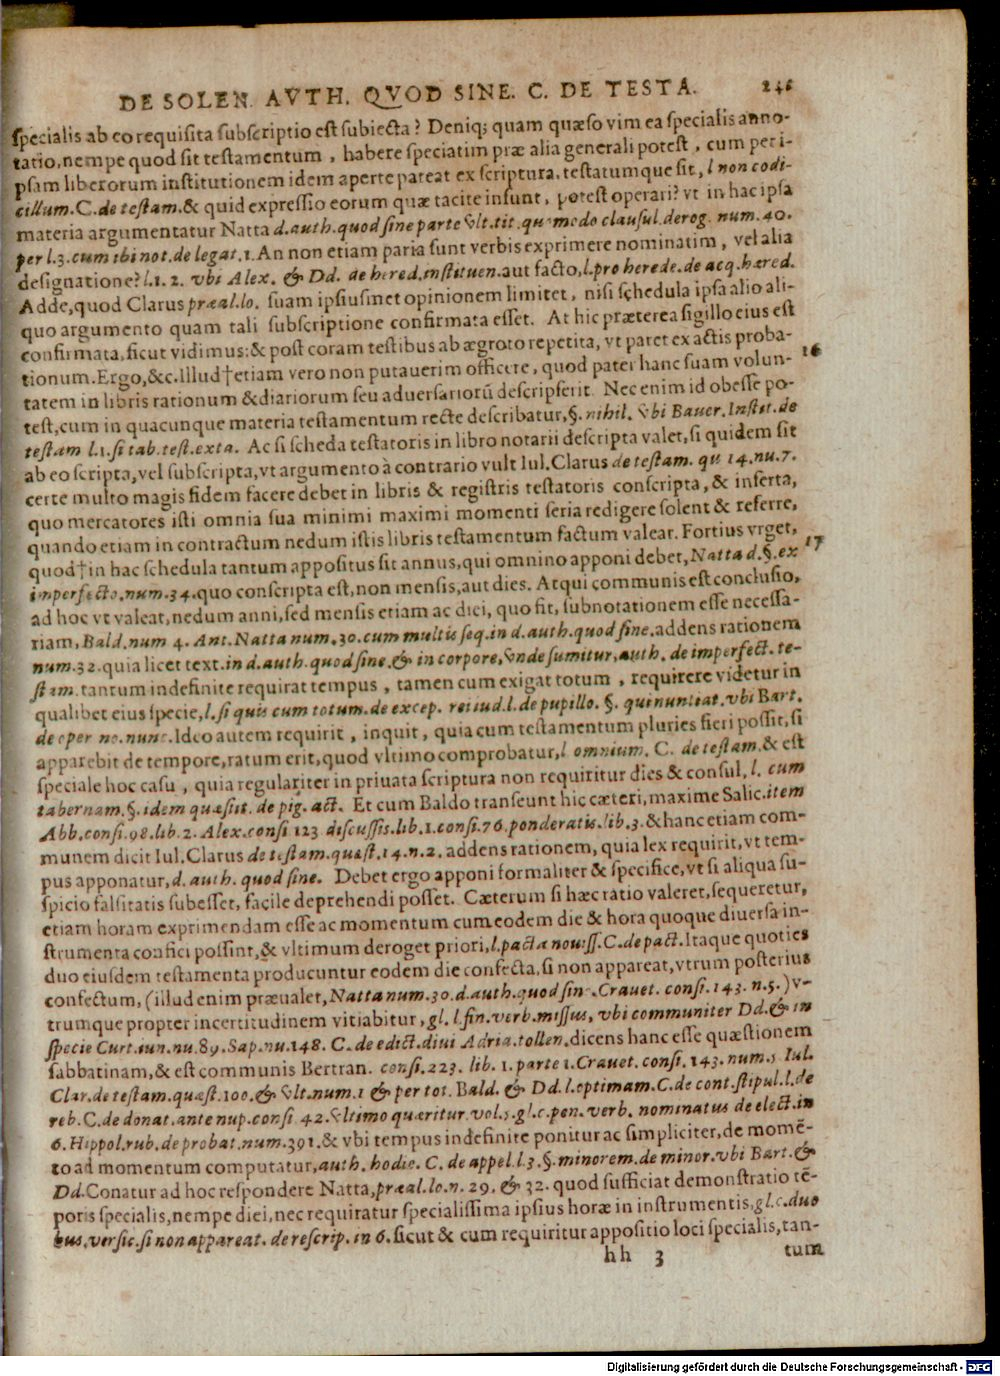 DE SOLEN. AVTH. QVOD SINE. C. DE TESTA. 246
specialis ab eo requisita subscriptio est subiecta? Deniq; quam quæso vim ea specialis anno-
tatio, nempe quod sit testamentum, habere speciatim præ alia generali potest, cum per i-
psam liberorum institutionem idem aperte pateat ex scriptura, testatumque sit, l non codi-
cillum. C. de testam. & quid expressio eorum quæ tacite insunt, potest operari? vt in hac ipsa
materia argumentatur Natta d. auth. quod sine parte vlt. tit. quemodo clausul. derog. num. 40.
per l. 3. cum ibi not. de legat. 1. An non etiam paria sunt verbis exprimere nominatim, vel alia
designatione? l. 1. 2. vbi Alex. & Dd. de hered. instituen. aut facto, l. pro herede. de acq. hæred.
Adde, quod Clarus præal. lo. suam ipsiusmet opinionem limitet, nisi schedula ipsa alio ali-
quo argumento quam tali subscriptione confirmata esset. At hic præterea sigillo eius est
confirmata, sicut vidimus: & post coram testibus ab ægroto repetita, vt patet ex actis proba-
tionum. Ergo, &c. Illud † etiam vero non putauerim officere, quod pater hanc suam volun- 16
tatem in libris rationum & diariorum seu aduersariorū descripserit. Nec enim id obesse po-
test, cum in quacunque materia testamentum recte describatur, §. nihil. vbi Bauer. Instit. de
testam l. 1. si tab. test. exta. Ac si scheda testatoris in libro notarii descripta valet, si quidem sit
ab eo scripta, vel subscripta, vt argumento à contrario vult Iul. Clarus de testam. qu 14. nu. 7.
certe multo magis fidem facere debet in libris & registris testatoris conscripta, & inserta,
quo mercatores isti omnia sua minimi maximi momenti seria redigere solent & referre,
quando etiam in contractum nedum istis libris testamentum factum valear. Fortius vrget,
quod † in hac schedula tantum appositus sit annus, qui omnino apponi debet, Natta d. §. ex 17
imperfecto. num. 34. quo conscripta est, non mensis, aut dies. Atqui communis est conclusio,
ad hoc vt valeat, nedum anni, sed mensis etiam ac diei, quo fit, subnotationem esse necessa-
riam, Bald. num 4. Ant. Natta num. 30. cum multis seq. in d. auth. quod sine. addens rationem
num. 32. quia licet text. in d. auth. quod sine. & in corpore, vnde sumitur, auth. de imperfect. te-
stam. tantum indefinite requirat tempus, tamen cum exigat totum, requirere videtur in
qualibet eius specie, l. si quis cum totum. de excep. rei iud. l. de pupillo. §. qui nuntiat. vbi Bart.
de oper no. nunc. Ideo autem requirit, inquit, quia cum testamentum pluries fieri possit, si
apparebit de tempore, ratum erit, quod vltimo comprobatur, l omnium. C. de testam. & est
speciale hoc casu, quia regulariter in priuata scriptura non requiritur dies & consul, l. cum
tabernam. §. idem quæsiit. de pig. act. Et cum Baldo transeunt hic cæteri, maxime Salic. item
Abb. consi. 98. lib. 2. Alex. consi 123 discussis. lib. 1. consi. 76. ponderatis. lib. 3. & hanc etiam com-
munem dicit Iul. Clarus de testam. quæst. 14. n. 2. addens rationem, quia lex requirit, vt tem-
pus apponatur, d. auth. quod sine. Debet ergo apponi formaliter & specifice, vt si aliqua su-
spicio falsitatis subesset, facile deprehendi posset. Cæterum si hæc ratio valeret, sequeretur,
etiam horam exprimendam esse ac momentum cum eodem die & hora quoque diuersa in-
strumenta confici possint, & vltimum deroget priori, l. pacta nouiss. C. de pact. Itaque quoties
duo eiusdem testamenta producuntur eodem die confecta, si non appareat, vtrum posterius
confectum, (illud enim præualet, Natta num. 30. d. auth. quod sine. Crauet. consi. 143. n. 5.) v-
trumque propter incertitudinem vitiabitur, gl. l. fin. verb. missus, vbi communiter Dd. & in
specie Curt. iun. nu. 89. Sap. nu. 148. C. de edict. diui Adria. tollen. dicens hanc esse quæstionem
sabbatinam, & est communis Bertran. consi. 223. lib. 1. parte 1. Crauet. consi. 143. num. 5 Iul.
Clar. de testam. quæst. 100. & vlt. num. 1 & per tot. Bald. & Dd. l. optimam. C. de cont. stipul. l. de
reb. C. de donat. ante nup. consi 42. vltimo quæritur. vol. 5. gl. c. pen. verb. nominatus de elect. in
6. Hippol. rub. de probat. num. 391. & vbi tempus indefinite ponitur ac simpliciter, de momē-
to ad momentum computatur, auth. hodie. C. de appel. l. 3. §. minorem. de minor. vbi Bart. &
Dd. Conatur ad hoc respondere Natta, præal. lo. n. 29. & 32. quod sufficiat demonstratio tē-
poris specialis, nempe diei, nec requiratur specialissima ipsius horæ in instrumentis, gl. c. duo
bus. versic. si non appareat. de rescrip. in 6. sicut & cum requiritur appositio loci specialis, tan-
hh 3 tum
Digitalisierung gefördert durch die Deutsche Forschungsgemeinschaft - DFG